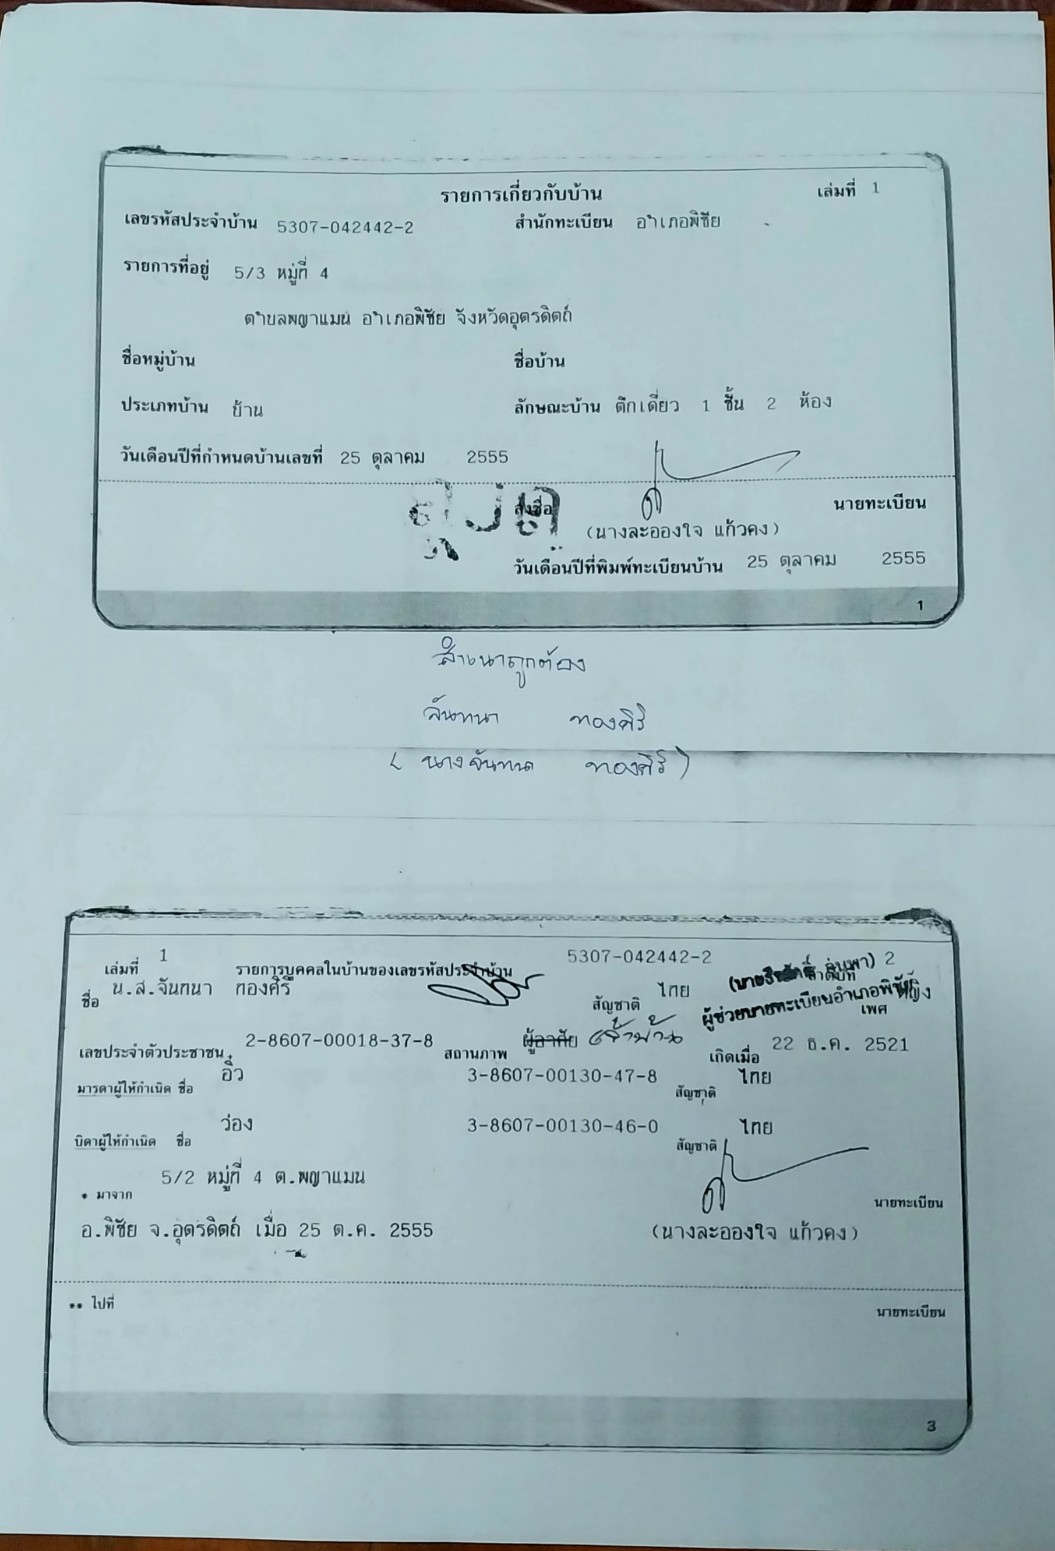 รายการเกี่ยวกับบ้าน เล่มที่ 1
เลขรหัสประจำบ้าน 5307-042442-2 สำนักทะเบียน อำเภอพิชัย
รายการที่อยู่ 5/3 หมู่ที่ 4
ตำบลพญาแมน อำเภอพิชัย จังหวัดอุตรดิตถ์
ชื่อหมู่บ้าน ชื่อบ้าน
ประเภทบ้าน บ้าน ลักษณะบ้าน ตึกเดี่ยว 1 ชั้น 2 ห้อง
วันเดือนปีที่กำหนดบ้านเลขที่ 25 ตุลาคม 2555
ลงชื่อ นายทะเบียน
(นางละอองใจ แก้วคง)
วันเดือนปีที่พิมพ์ทะเบียนบ้าน 25 ตุลาคม 2555
1
สำเนาถูกต้อง
จันทนา ทองศิริ
(นางจันทนา ทองศิริ)
เล่มที่ 1 รายการบุคคลในบ้านของเลขรหัสประจำบ้าน 5307-042442-2 ลำดับที่ 2
ชื่อ น.ส.จันทนา ทองศิริ สัญชาติ ไทย เพศ หญิง
ผู้ช่วยนายทะเบียนอำเภอพิชัย
เลขประจำตัวประชาชน 2-8607-00018-37-8 สถานภาพ ผู้อาศัย เจ้าบ้าน เกิดเมื่อ 22 ธ.ค. 2521
มารดาผู้ให้กำเนิด ชื่อ อิ๋ว 3-8607-00130-47-8 สัญชาติ ไทย
บิดาผู้ให้กำเนิด ชื่อ ว่อง 3-8607-00130-46-0 สัญชาติ ไทย
* มาจาก 5/2 หมู่ที่ 4 ต.พญาแมน นายทะเบียน
อ.พิชัย จ.อุตรดิตถ์ เมื่อ 25 ต.ค. 2555 (นางละอองใจ แก้วคง)
** ไปที่ นายทะเบียน
3